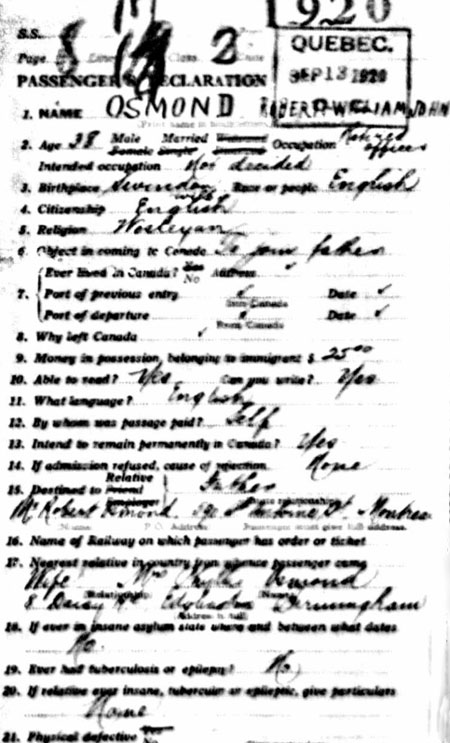 920
S.S.
Page 8 Line 14 Class 2
QUEBEC.
SEP 13 1920
PASSENGER'S DECLARATION
1. NAME OSMOND ROBERT WILLIAM JOHN
2. Age 38 Male Married Widowed Occupation Retired
Female Single Divorced officer
Intended occupation Not decided
3. Birthplace Swindon Wilts Race or people English
4. Citizenship English
5. Religion Wesleyan
6. Object in coming to Canada To join father
Ever lived in Canada? Yes No Address
7. Port of previous entry Date
into Canada
Port of departure Date
from Canada
8. Why left Canada
9. Money in possession, belonging to immigrant $ 25 00
10. Able to read? Yes Can you write? Yes
11. What language? English
12. By whom was passage paid? Self
13. Intend to remain permanently in Canada? Yes
14. If admission refused, cause of rejection None
15. Destined to Relative Friend Employer Father
Mr Robert Osmond St Antoine St Montreal
Name P.O. Address Passenger must give full address.
16. Name of Railway on which passenger has order or ticket
17. Nearest relative in country from whence passenger came
Wife Mrs Osmond
Relationship Name
8 Daisy Rd Edgbaston Birmingham
Address in full
18. If ever in insane asylum state where and between what dates
No
19. Ever had tuberculosis or epilepsy? No
20. If relative ever insane, tubercular or epileptic, give particulars
None
21. Physical defective Yes No